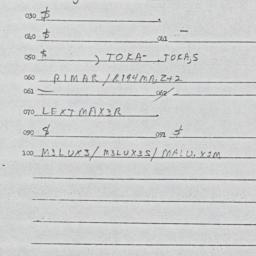 030 $
040 $ 041 -
050 $ ) TOKA- TOKA,S
060 RIMAR/R194MA.Z+2
061 — 062 -
070 LEXTMAX3R
090 $ 091 $
100 M3LUX3/M3LUX3S/MALU.X3M